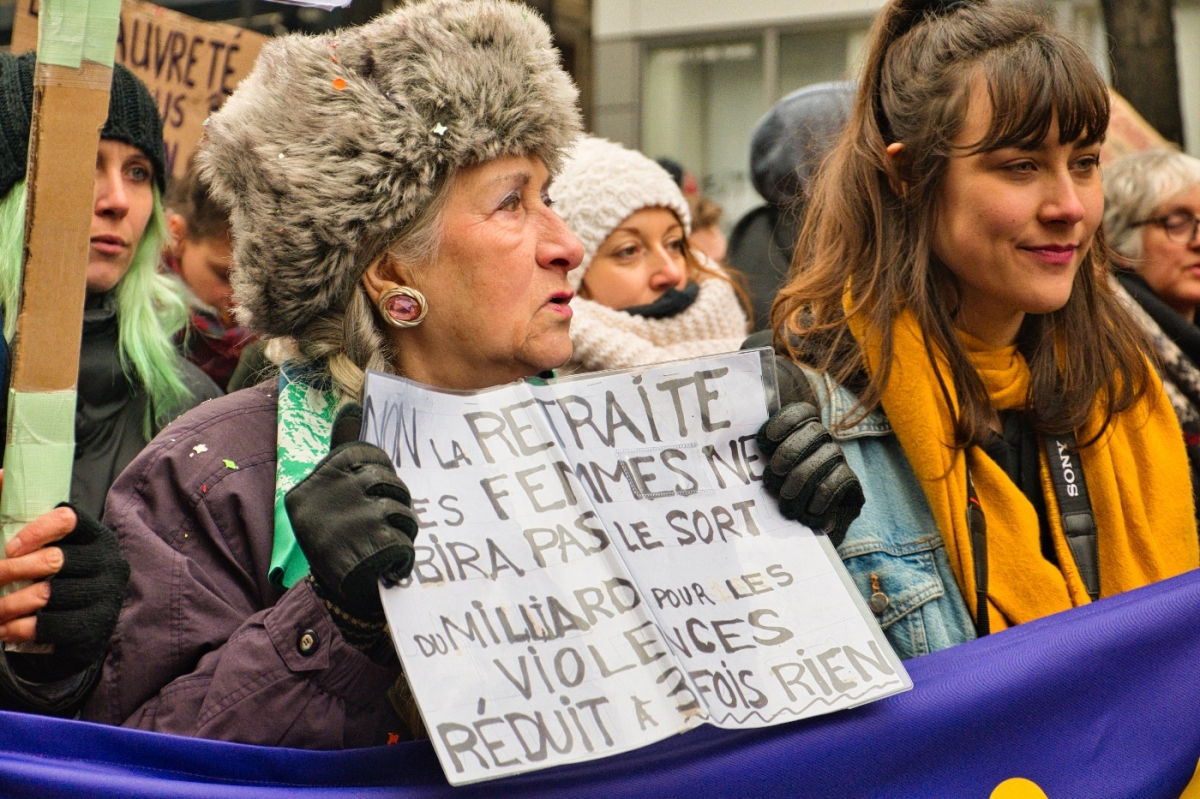 AUVRETÉ
US
NON LA RETRAITE
ES FEMMES NE
BIRA PAS LE SORT
DU MILLIARD POUR LES
VIOLENCES
RÉDUIT À 3 FOIS RIEN
SONY